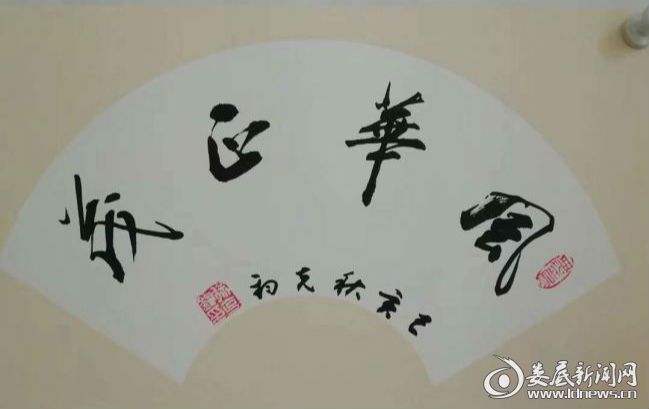 風華正茂
己亥秋克初
娄底新闻网
www.ldnews.cn